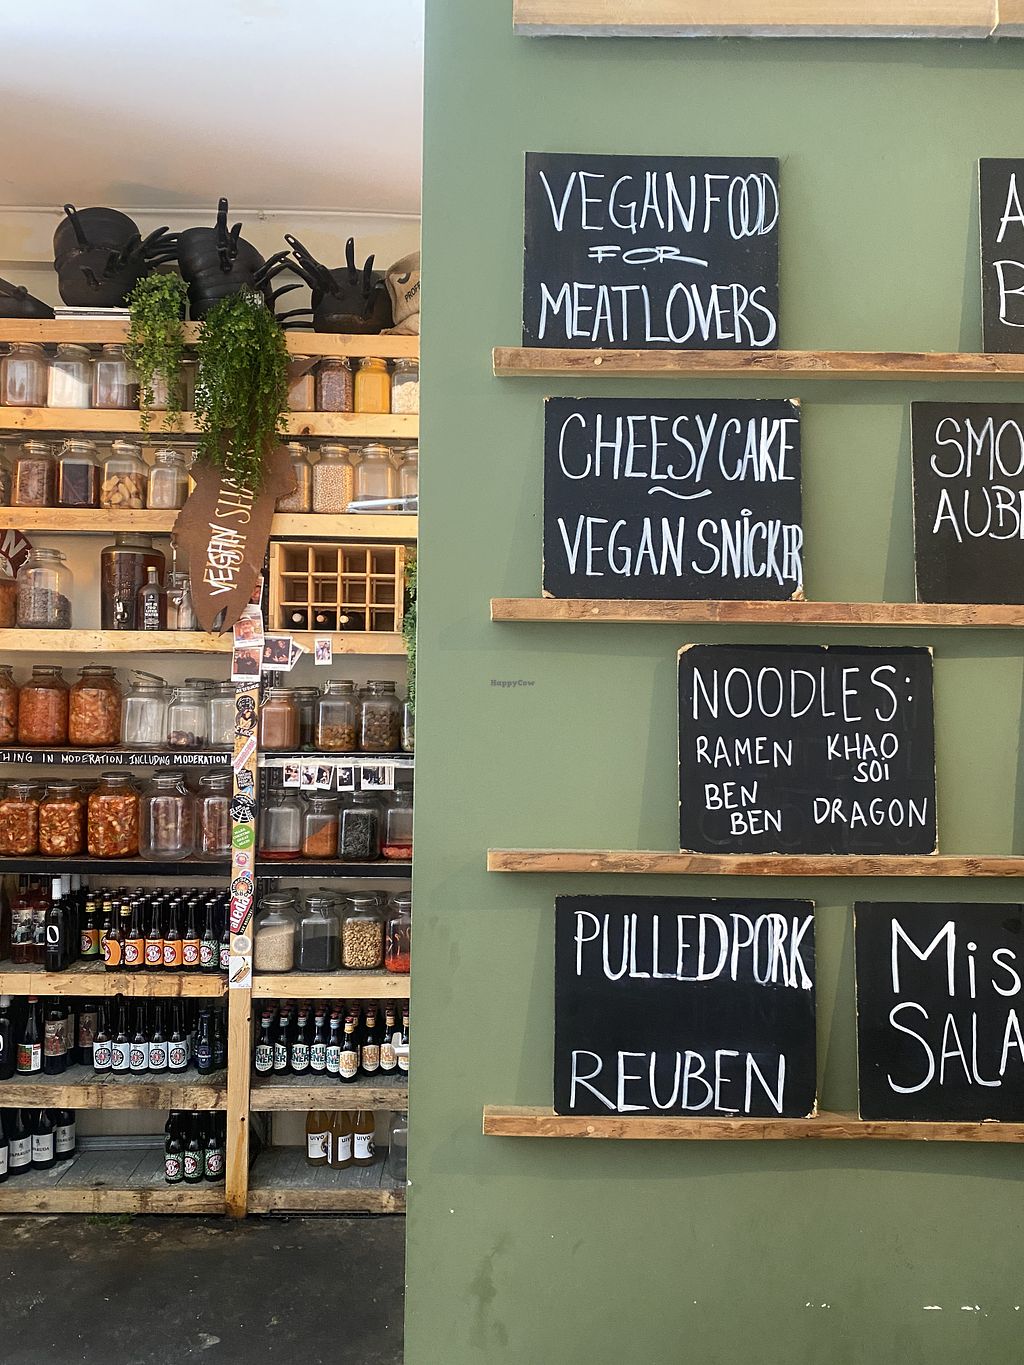 VEGAN FOOD
FOR
MEATLOVERS
A
B
CHEESY CAKE
VEGAN SNICKER
SMO
AUB
NOODLES:
RAMEN KHAO
SOI
BEN
BEN DRAGON
PULLEDPORK
REUBEN
MiS
SALA
VEGAN
THING IN MODERATION. INCLUDING MODERATION
HappyCow
UIVO UIVO